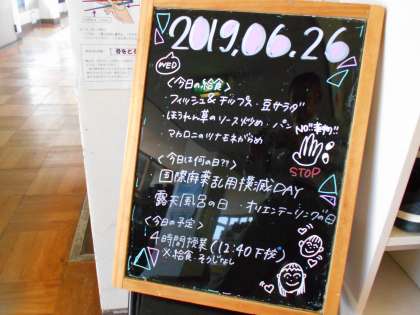 2019.06.26
WED
<今日の給食>
フィッシュ&チップス・豆サラダ
ほうれん草のソース炒め・パン
マカロニのツナマヨネがらめ
NO!!薬物!!
STOP
<今日は何の日??>
国際麻薬乱用撲滅DAY
露天風呂の日・オリエンテーリングの日
<今日の予定>
4時間授業(12:40下校)
×給食・そうじなし